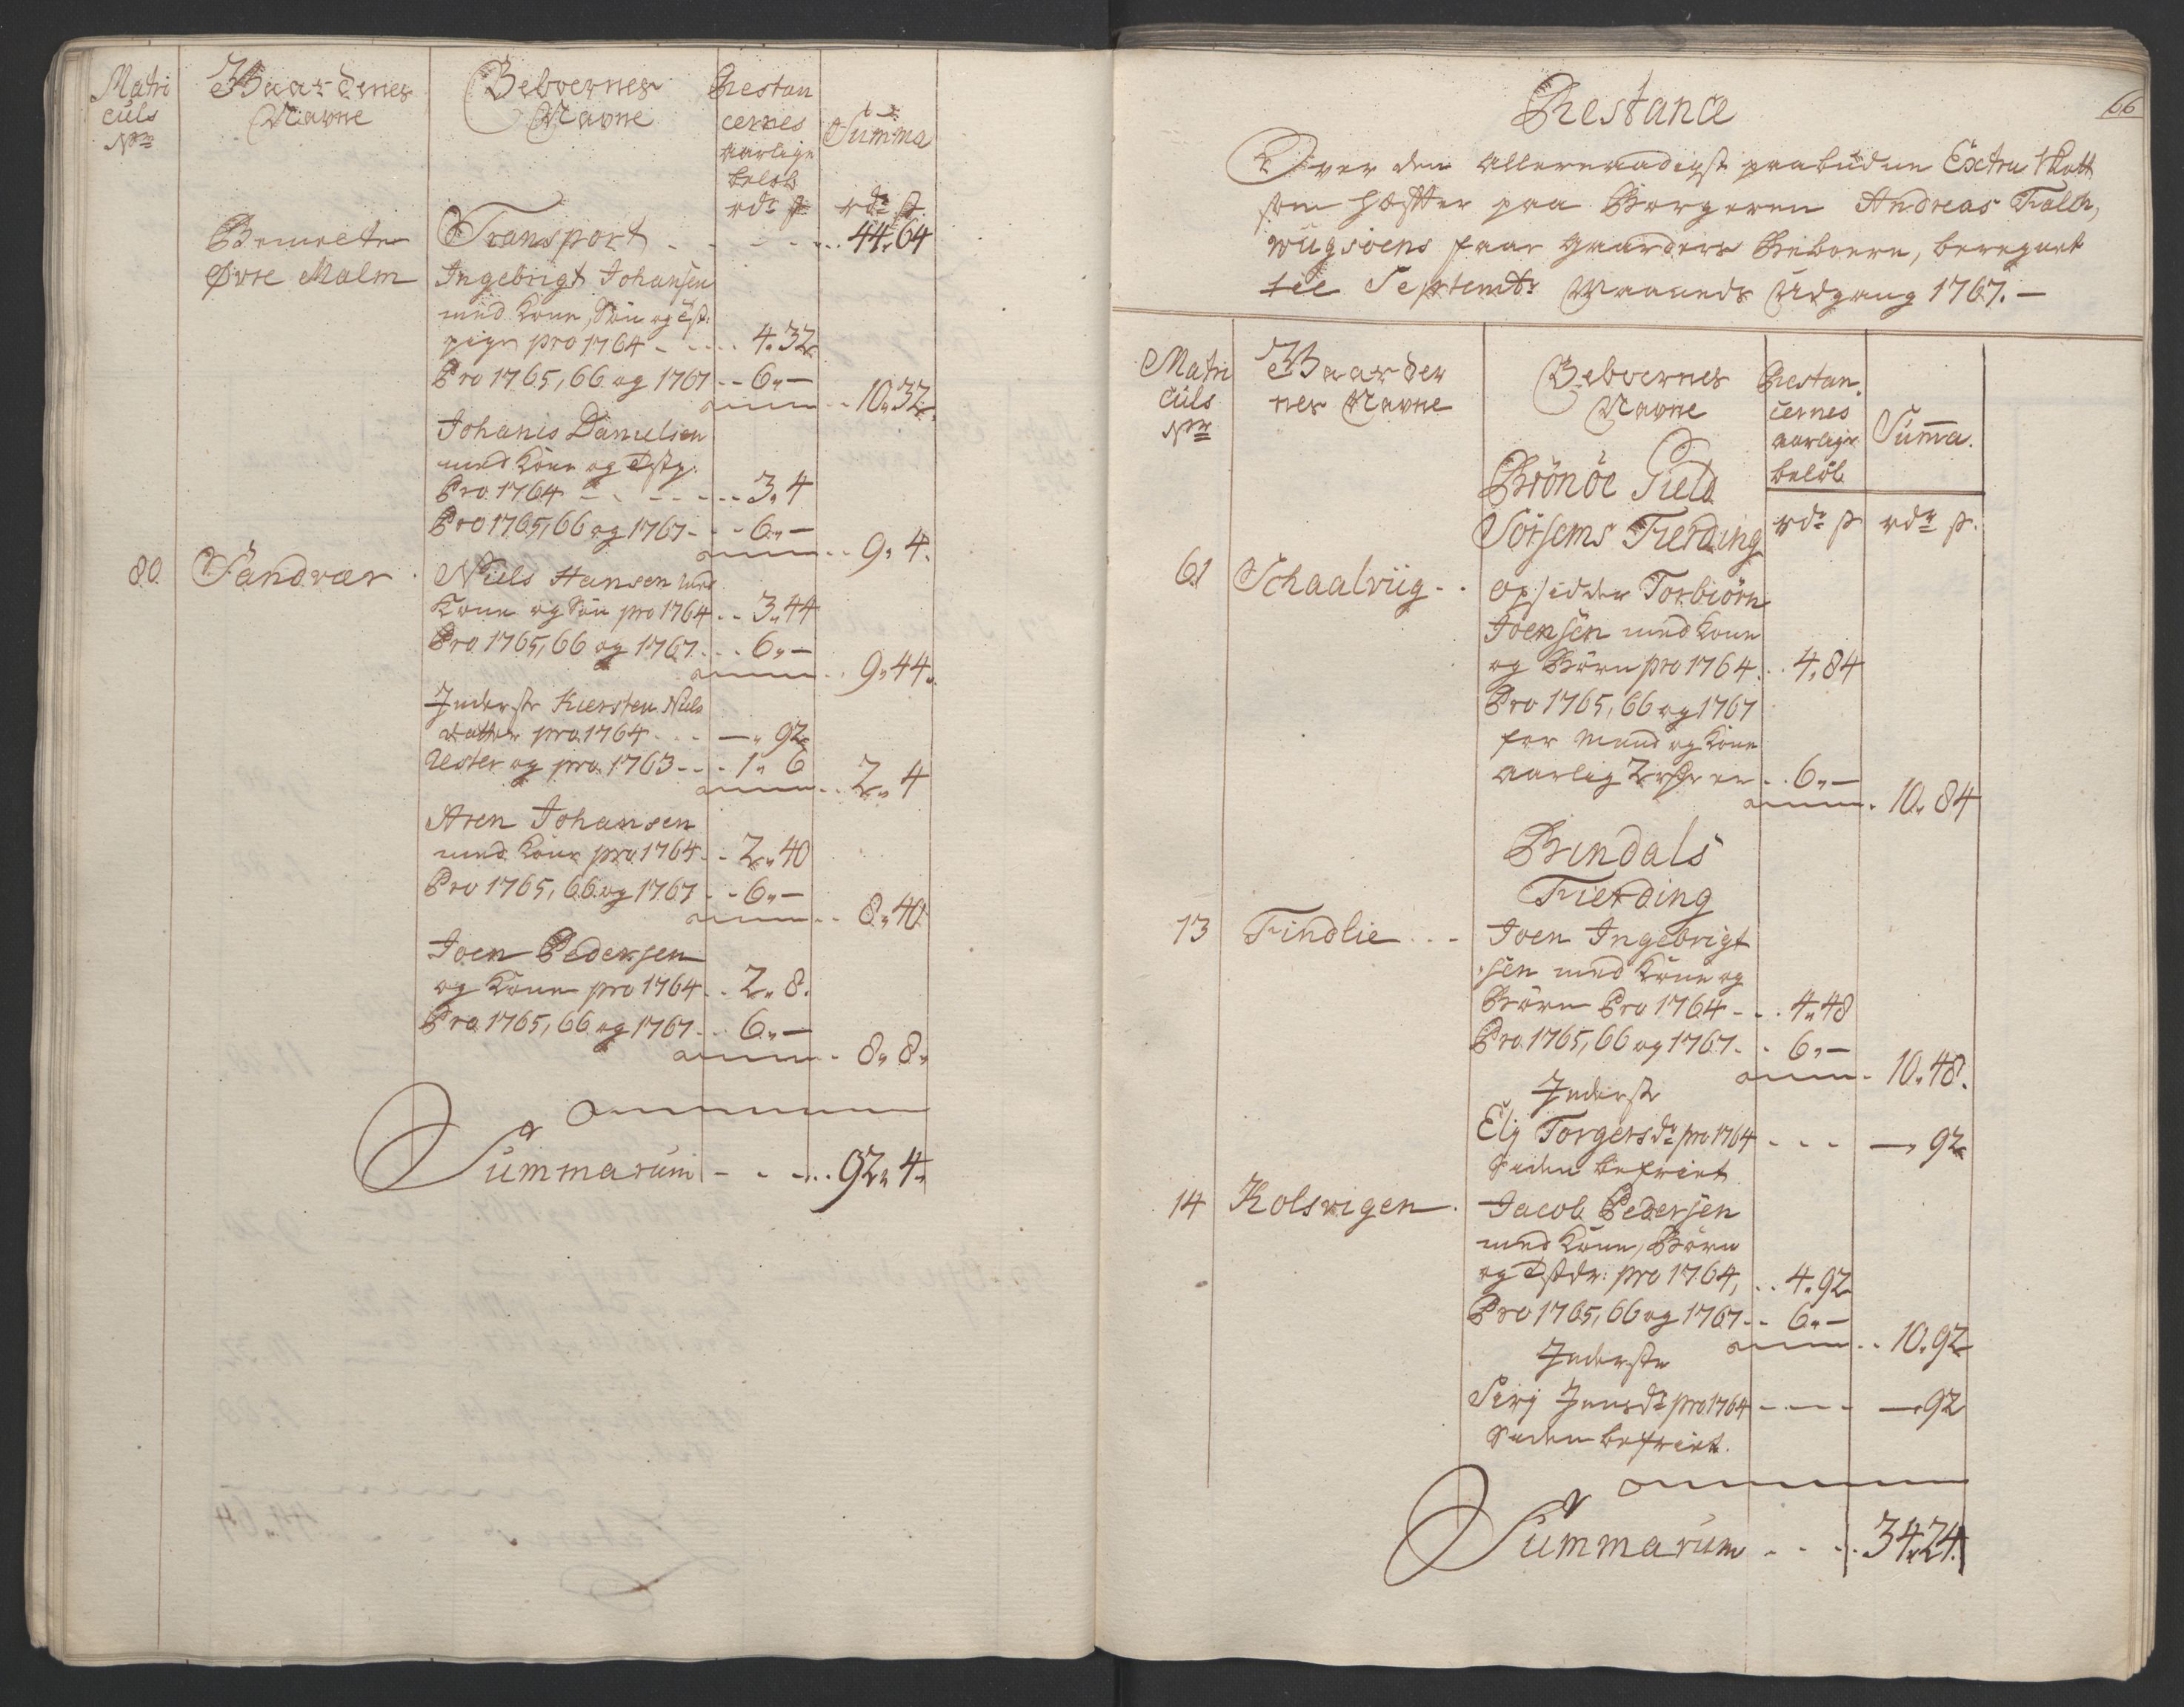 Matri
culs
No
Gaardenes
Navne
Beboernes
Navne
Restan
cernes
aarlige
beløb
rdr ß
Summa
rdr ß
Transport - - - 44,, 64
Bemelte
Øvre Malm
Ingebrigt Johansen
med Kone, Søn og
pige pro 1764 - - - 4,, 32
Pro 1765, 66 og 1767 - - 6,, —
10,, 32
Johanis Danielsen
med Kone og
Pro 1764 - - - 3,, 4
Pro 1765, 66 og 1767 - - 6,, —
9,, 4
80 Sandvær
Niels Hansen med
Kone og Søn pro 1764 - - 3,, 44
Pro 1765, 66 og 1767 - - 6,, —
9,, 44
Inderste Kiersten Niels
datter pro 1764 - - —,, 92
Rester og pro 1763 - - 1,, 6
2,, 4
Aren Johansen
med Kone pro 1764 - - 2,, 40
Pro 1765, 66 og 1767 - - 6,, —
8,, 40
Joen Pedersen
og Kone pro 1764 - - 2,, 8
Pro 1765, 66 og 1767 - - 6,, —
8,, 8
Summarum - - - 92,, 4
66
Restance
Over den Allernaadigst paabudne Extra Skatt
som hæfter paa Borgeren Andreas Falch,
paar Gaarders Beboere, beregnet
til Septembr Maaneds Udgang 1767. —
Matri
culs
No
Gaarder
nes Navne
Beboernes
Navne
Restan
cernes
aarlige
beløb
Summa.
Brönöe Gield
Sörsems Fierding
rdr ß rdr ß.
61 Schaalviig - -
Opsidder Torbiörn
Joensen med Kone
og Börn pro 1764 - - 4,, 84
Pro 1765, 66 og 1767
for Mand og Kone
aarlig 2 rdr er - - 6,, —
10,, 84
Bindals
Fierding
13 Findlie - - -
Joen Ingebrigt
sen med Kone og
Börn Pro 1764 - - - 4,, 48
Pro 1765, 66 og 1767 - - 6,, —
10,, 48.
Inderste
Elj Torgersdr pro 1764 - - - —,, 92
Siden befriet
14 Kolsvigen -
Jacob Pedersen
med Kone, Börn
og pro 1764, - - 4,, 92
Pro 1765, 66 og 1767 - - 6,, —
10,, 92
Inderste
Sirj Jensdr pro 1764 - - - —,, 92
Siden befriet.
Summarum - - - 34,, 24